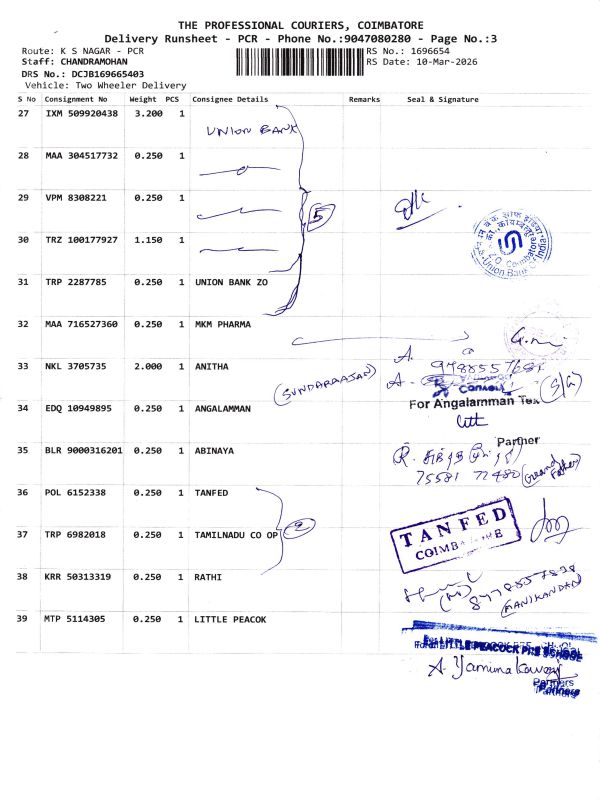 THE PROFESSIONAL COURIERS, COIMBATORE
Delivery Runsheet - PCR - Phone No.:9047080280 - Page No.:3
Route: K S NAGAR - PCR
RS No.: 1696654
Staff: CHANDRAMOHAN
RS Date: 10-Mar-2026
DRS No.: DCJB169665403
Vehicle: Two Wheeler Delivery
S No Consignment No Weight PCS Consignee Details Remarks Seal & Signature
27 IXM 509920438 3.200 1 UNION BANK
28 MAA 304517732 0.250 1
29 VPM 8308221 0.250 1
5
30 TRZ 100177927 1.150 1
Union Bank of India
ZO Coimbatore
31 TRP 2287785 0.250 1 UNION BANK ZO
32 MAA 716527360 0.250 1 MKM PHARMA
33 NKL 3705735 2.000 1 ANITHA
(SUNDARAAJAN)
34 EDQ 10949895 0.250 1 ANGALAMMAN
For Angalamman Tex
Partner
35 BLR 9000316201 0.250 1 ABINAYA
75581 72480 (Grand Father)
36 POL 6152338 0.250 1 TANFED
TANFED
2
37 TRP 6982018 0.250 1 TAMILNADU CO OP
38 KRR 50313319 0.250 1 RATHI
(MANIKANDAN)
39 MTP 5114305 0.250 1 LITTLE PEACOK
LITTLE PEACOCK PRE SCHOOL
Partners